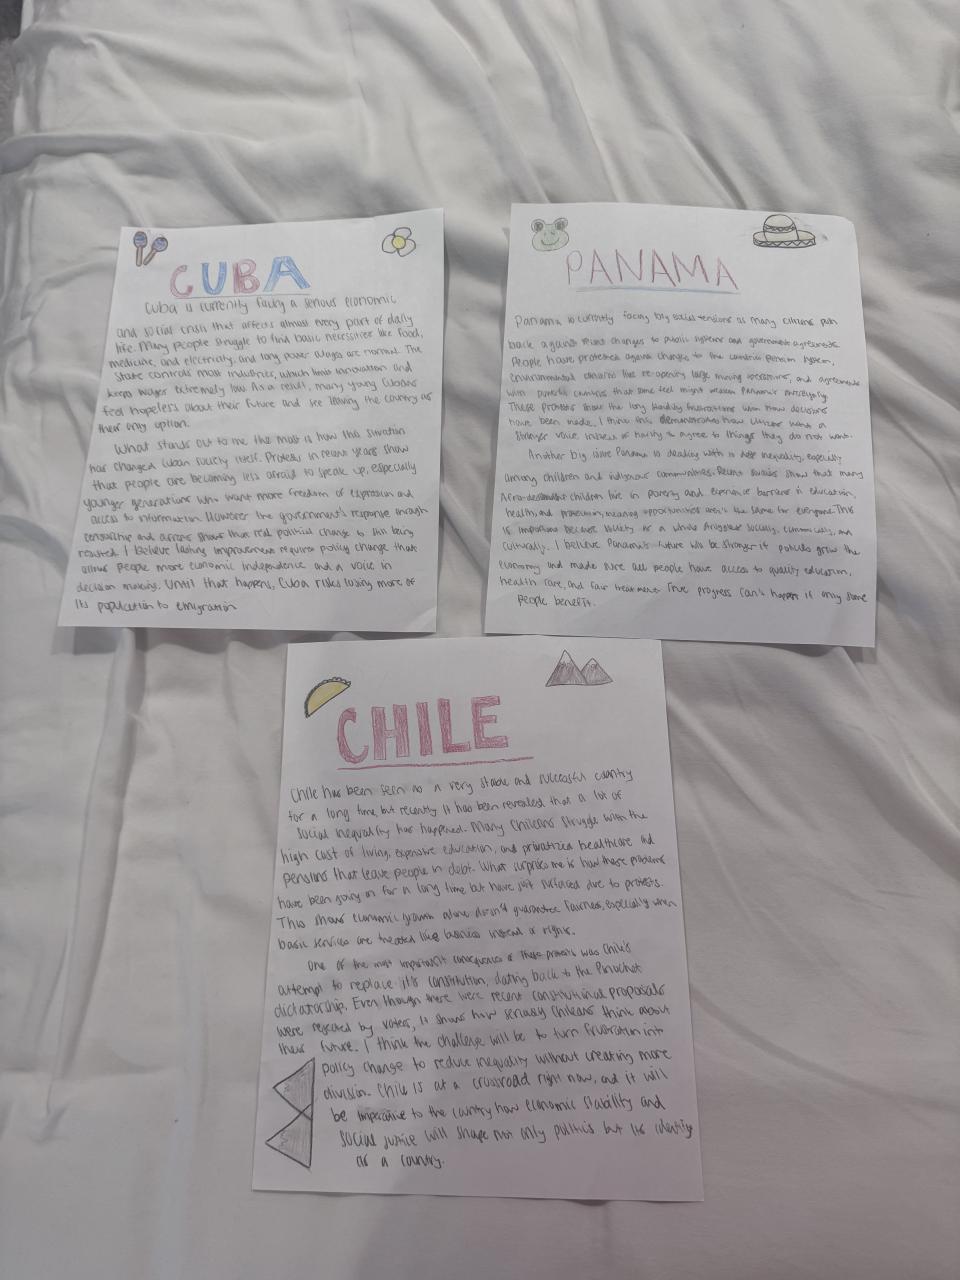 CUBA
Cuba is currently facing a serious economic
and social crisis that affects almost every part of daily
life. Many people struggle to find basic necessities like food,
medicine, and electricity, and long power are normal. The
state controls most industries, which limits innovation and
keeps wages extremely low. As a result, many young Cubans
feel hopeless about their future and see leaving the country as
their only option.
What stands out to me the most is how this situation
has changed Cuban society itself. Protests in recent years show
that people are becoming less afraid to speak up, especially
younger generations who want more freedom of expression and
access to information. However the government's response through
censorship and arrests shows that real political change is still being
resisted. I believe lasting improvement requires policy change that
allows people more economic independence and a voice in
decision making. Until that happens, Cuba risks losing more of
its population to emigration
PANAMA
Panama is currently facing big social tensions as many citizens push
back against recent changes to public systems and government agreements.
People have protested against changes to the countries pension system,
environmental concerns like re-opening large mining operations, and agreements
with powerful countries that some feel might weaken Panama's sovereignty.
These protests show the long standing frustrations with how decisions
have been made. I think this demonstrates how citizens want a
stronger voice instead of having to agree to things they do not want.
Another big issue Panama is dealing with is deep inequality, especially
among children and indigenous communities. Recent studies show that many
Afro-descendant children live in poverty and experience barriers in education,
health, and protection, meaning opportunities aren't the same for everyone. This
is important because society as a whole struggles socially, economically, and
culturally. I believe Panama's future will be stronger if policies grow the
economy and made sure all people have access to quality education,
health care, and fair treatment. True progress can't happen if only some
people benefit.
CHILE
Chile has been seen as a very stable and successful country
for a long time, but recently it has been revealed that a lot of
social inequality has happened. Many Chileans struggle with the
high cost of living, expensive education, and privatized healthcare and
pensions that leave people in debt. What surprises me is how these problems
have been going on for a long time but have just surfaced due to protests.
This shows economic growth alone doesn't guarantee fairness, especially when
basic services are treated like business instead of rights.
One of the most important consequences of these protests was Chile's
attempt to replace it's constitution, dating back to the Pinochet
dictatorship. Even though there were recent constitutional proposals
were rejected by voters, it shows how seriously Chileans think about
their future. I think the challenge will be to turn frustration into
policy change to reduce inequality without creating more
division. Chile is at a crossroad right now, and it will
be imperative to the country how economic stability and
social justice will shape not only politics but its identity
as a country.